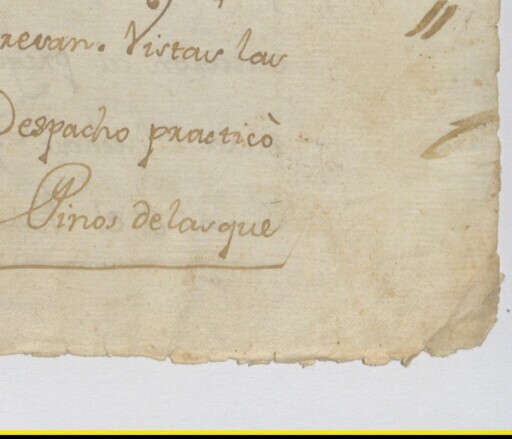 revan. Vistas las
Despacho practicò
Pinos delasque